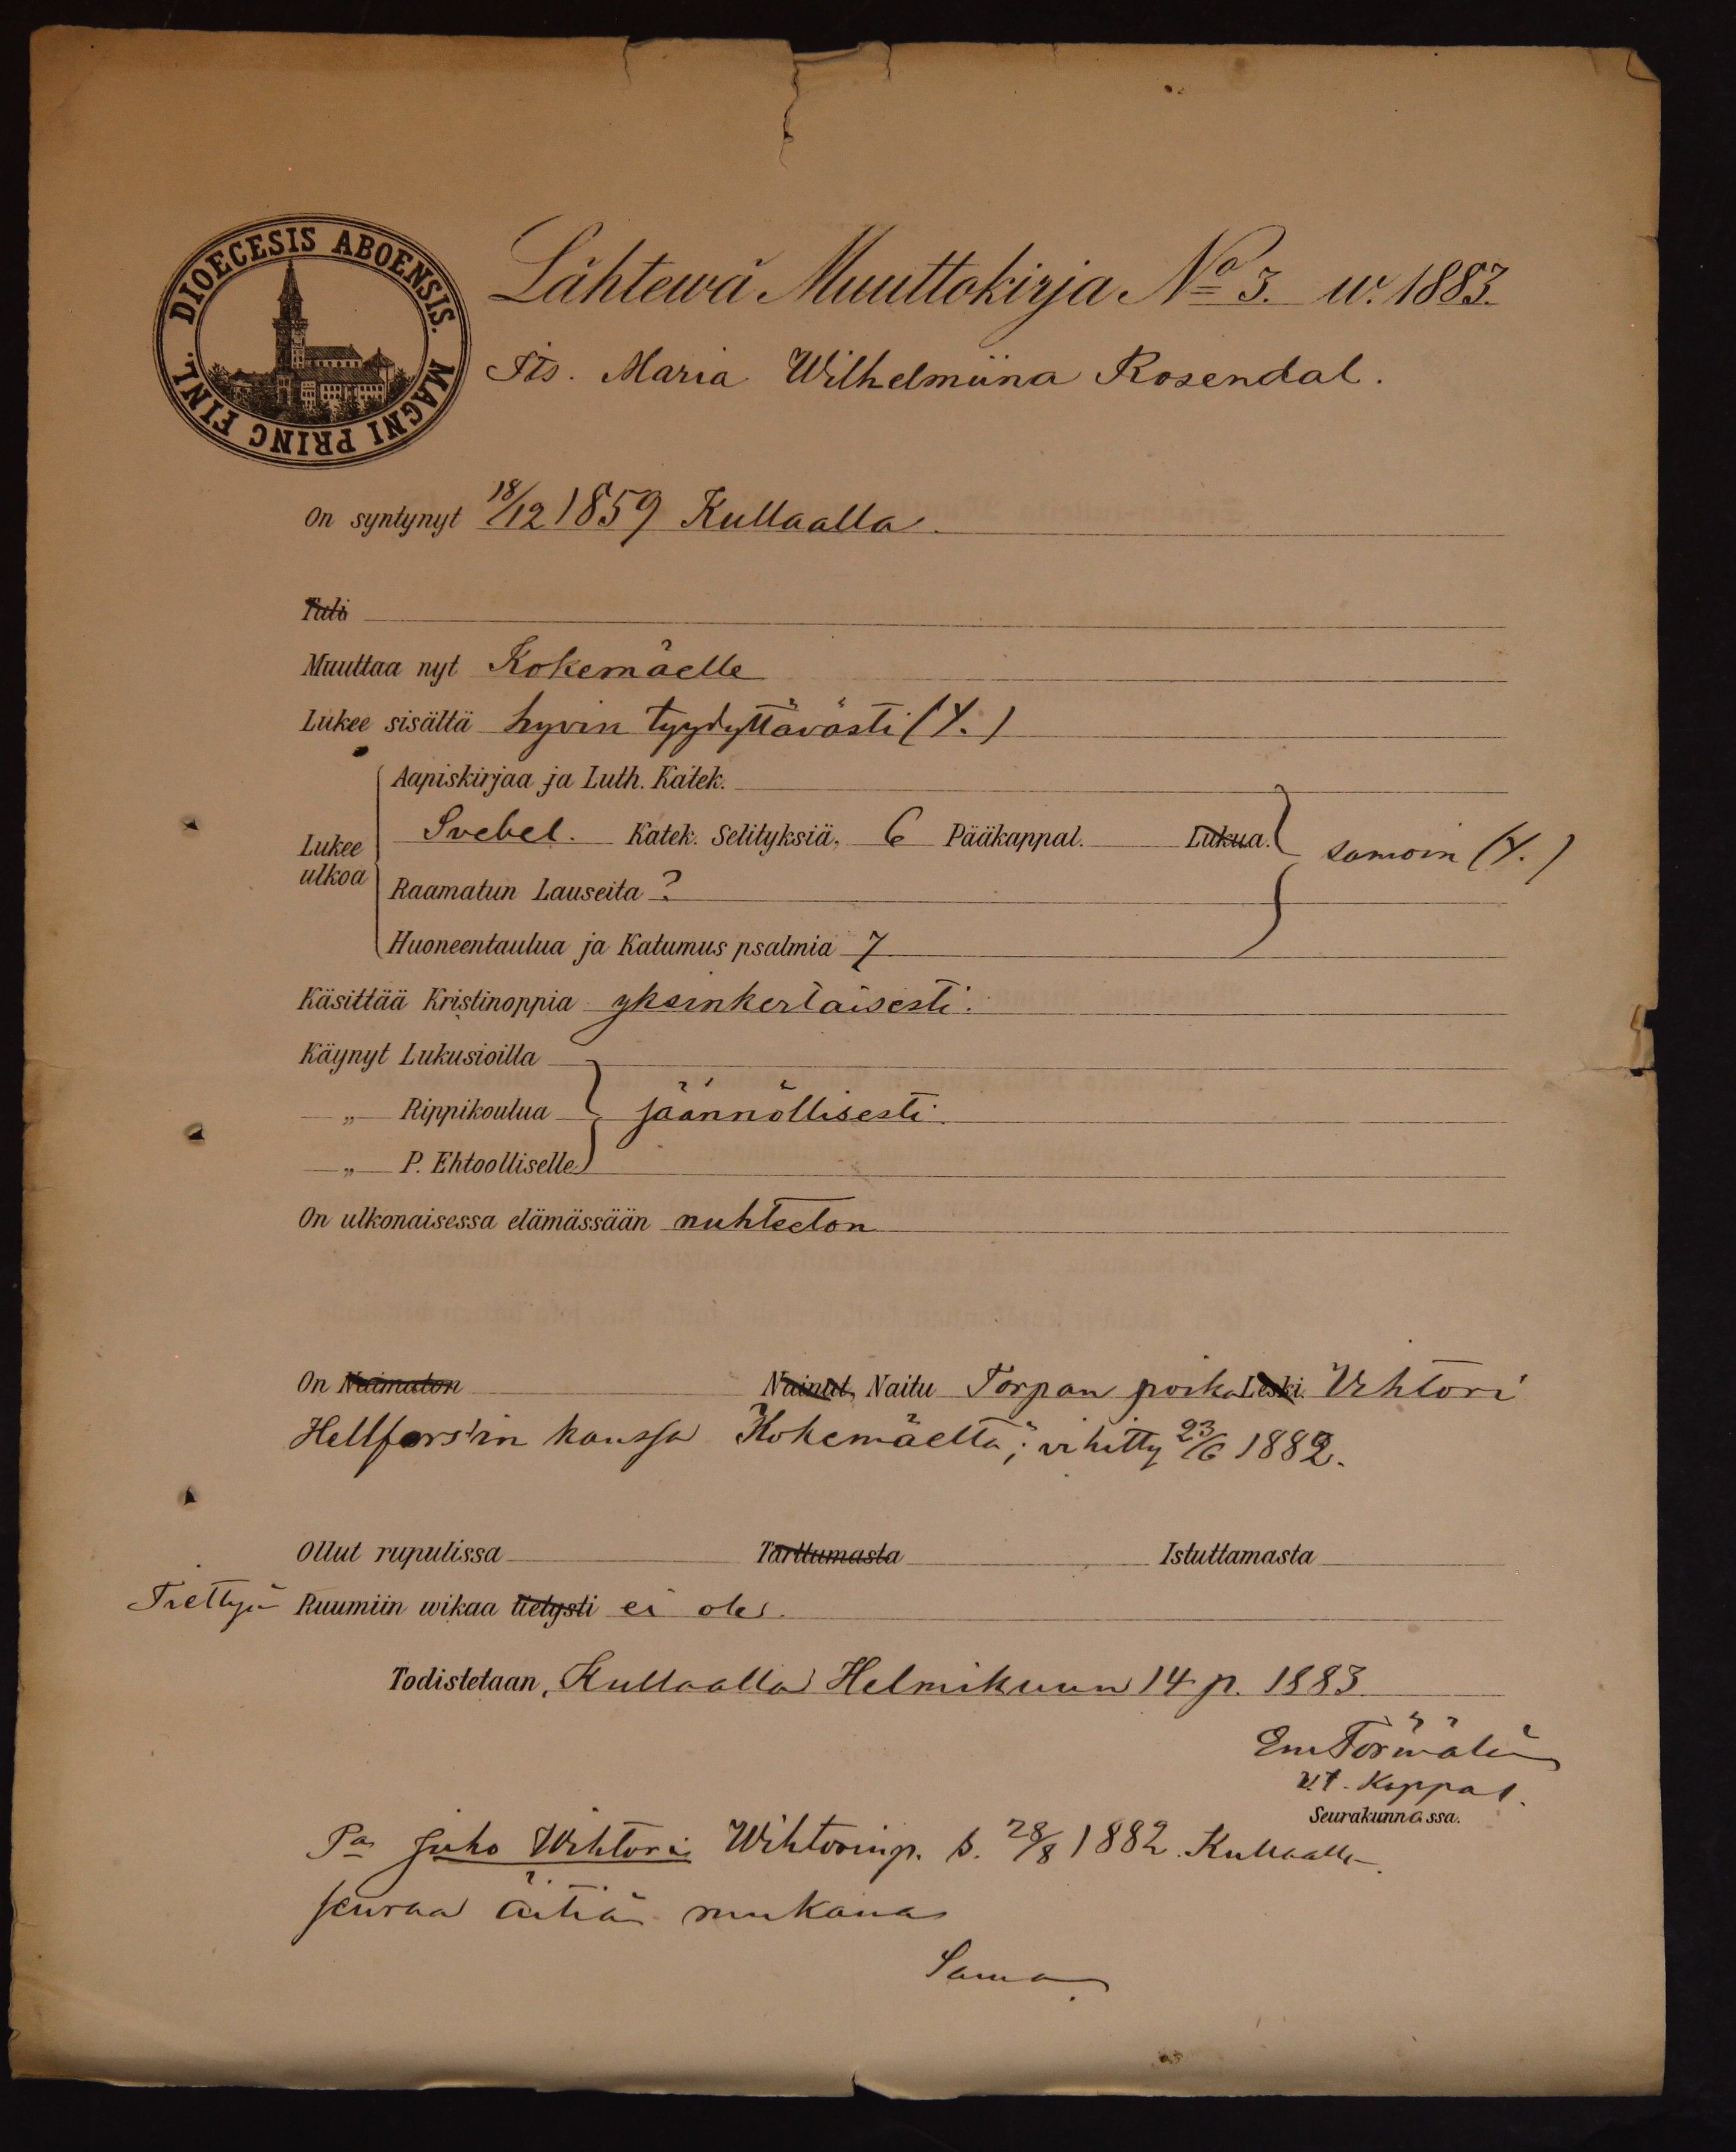 DIOECESIS ABOENSIS. MAGNI PRINC FINL.
Lähtewä Muuttokirja No 3. w. 1883.
Its. Maria Wilhelmiina Rosendal.
On syntynyt 18/12 1859 Kullaalla.
Tuli
Muuttaa nyt Kokemäelle
Lukee sisältä hyvin tyydyttävästi (Y.)
Aapiskirjaa ja Luth. Katek.
Lukee ulkoa
Svebel. Katek. Selityksiä, 6 Pääkappal. Lukua. samoin (Y.)
Raamatun Lauseita ?
Huoneentaulua ja Katumus psalmia 7
Käsittää Kristinoppia yksinkertaisesti.
Käynyt Lukusioilla
„ Rippikoulua säännöllisesti.
„ P. Ehtoolliselle
On ulkonaisessa elämässään nuhteeton
On Naimaton Nainut, Naitu Torpan poika Leski. Vihtori
Hellfors'in kanssa Kokemäeltä; vihitty 23/6 1882.
Ollut rupulissa Tarttumasta Istuttamasta
Tiettyä Ruumiin wikaa tietysti ei ole.
Todistetaan, Kullaalla Helmikuun 14 p. 1883
Em Törmälä
v.t. Kappal.
Seurakunnassa.
Pa Juho Wihtori Wihtorinp. s. 28/8 1882. Kullaalla.
seuraa äitiä mukana
Sama.